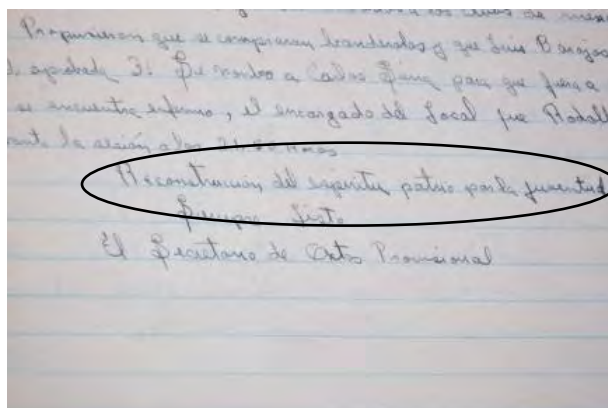 Propusieron que se compraran banderolas y que Luis Barajas
aprobada 3. Se nombro a Carlos para que fuera a
se encuentra enfermo, el encargado del Local fue Rodolf
la sesión a las 21:30 Horas
Reconstruccion del espiritu patrio por la juventud
Siempre Listo
El Secretario de Actas Provisional